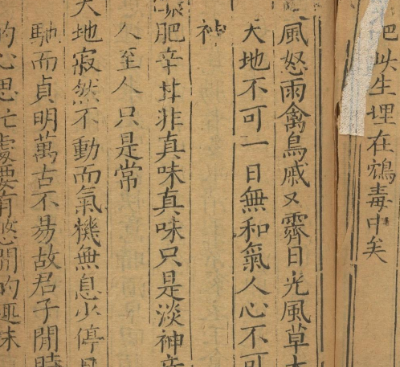 把此生埋在鴆毒中矣
風怒雨禽鳥戚又霽日光風草
天地不可一日無和氣人心不可
神
肥辛甘非真味真味只是淡神
人至人只是常
天地寂然不動而氣機無息少停
馳而貞明萬古不易故君子閒時
的心思忙處要有悠閒的趣味